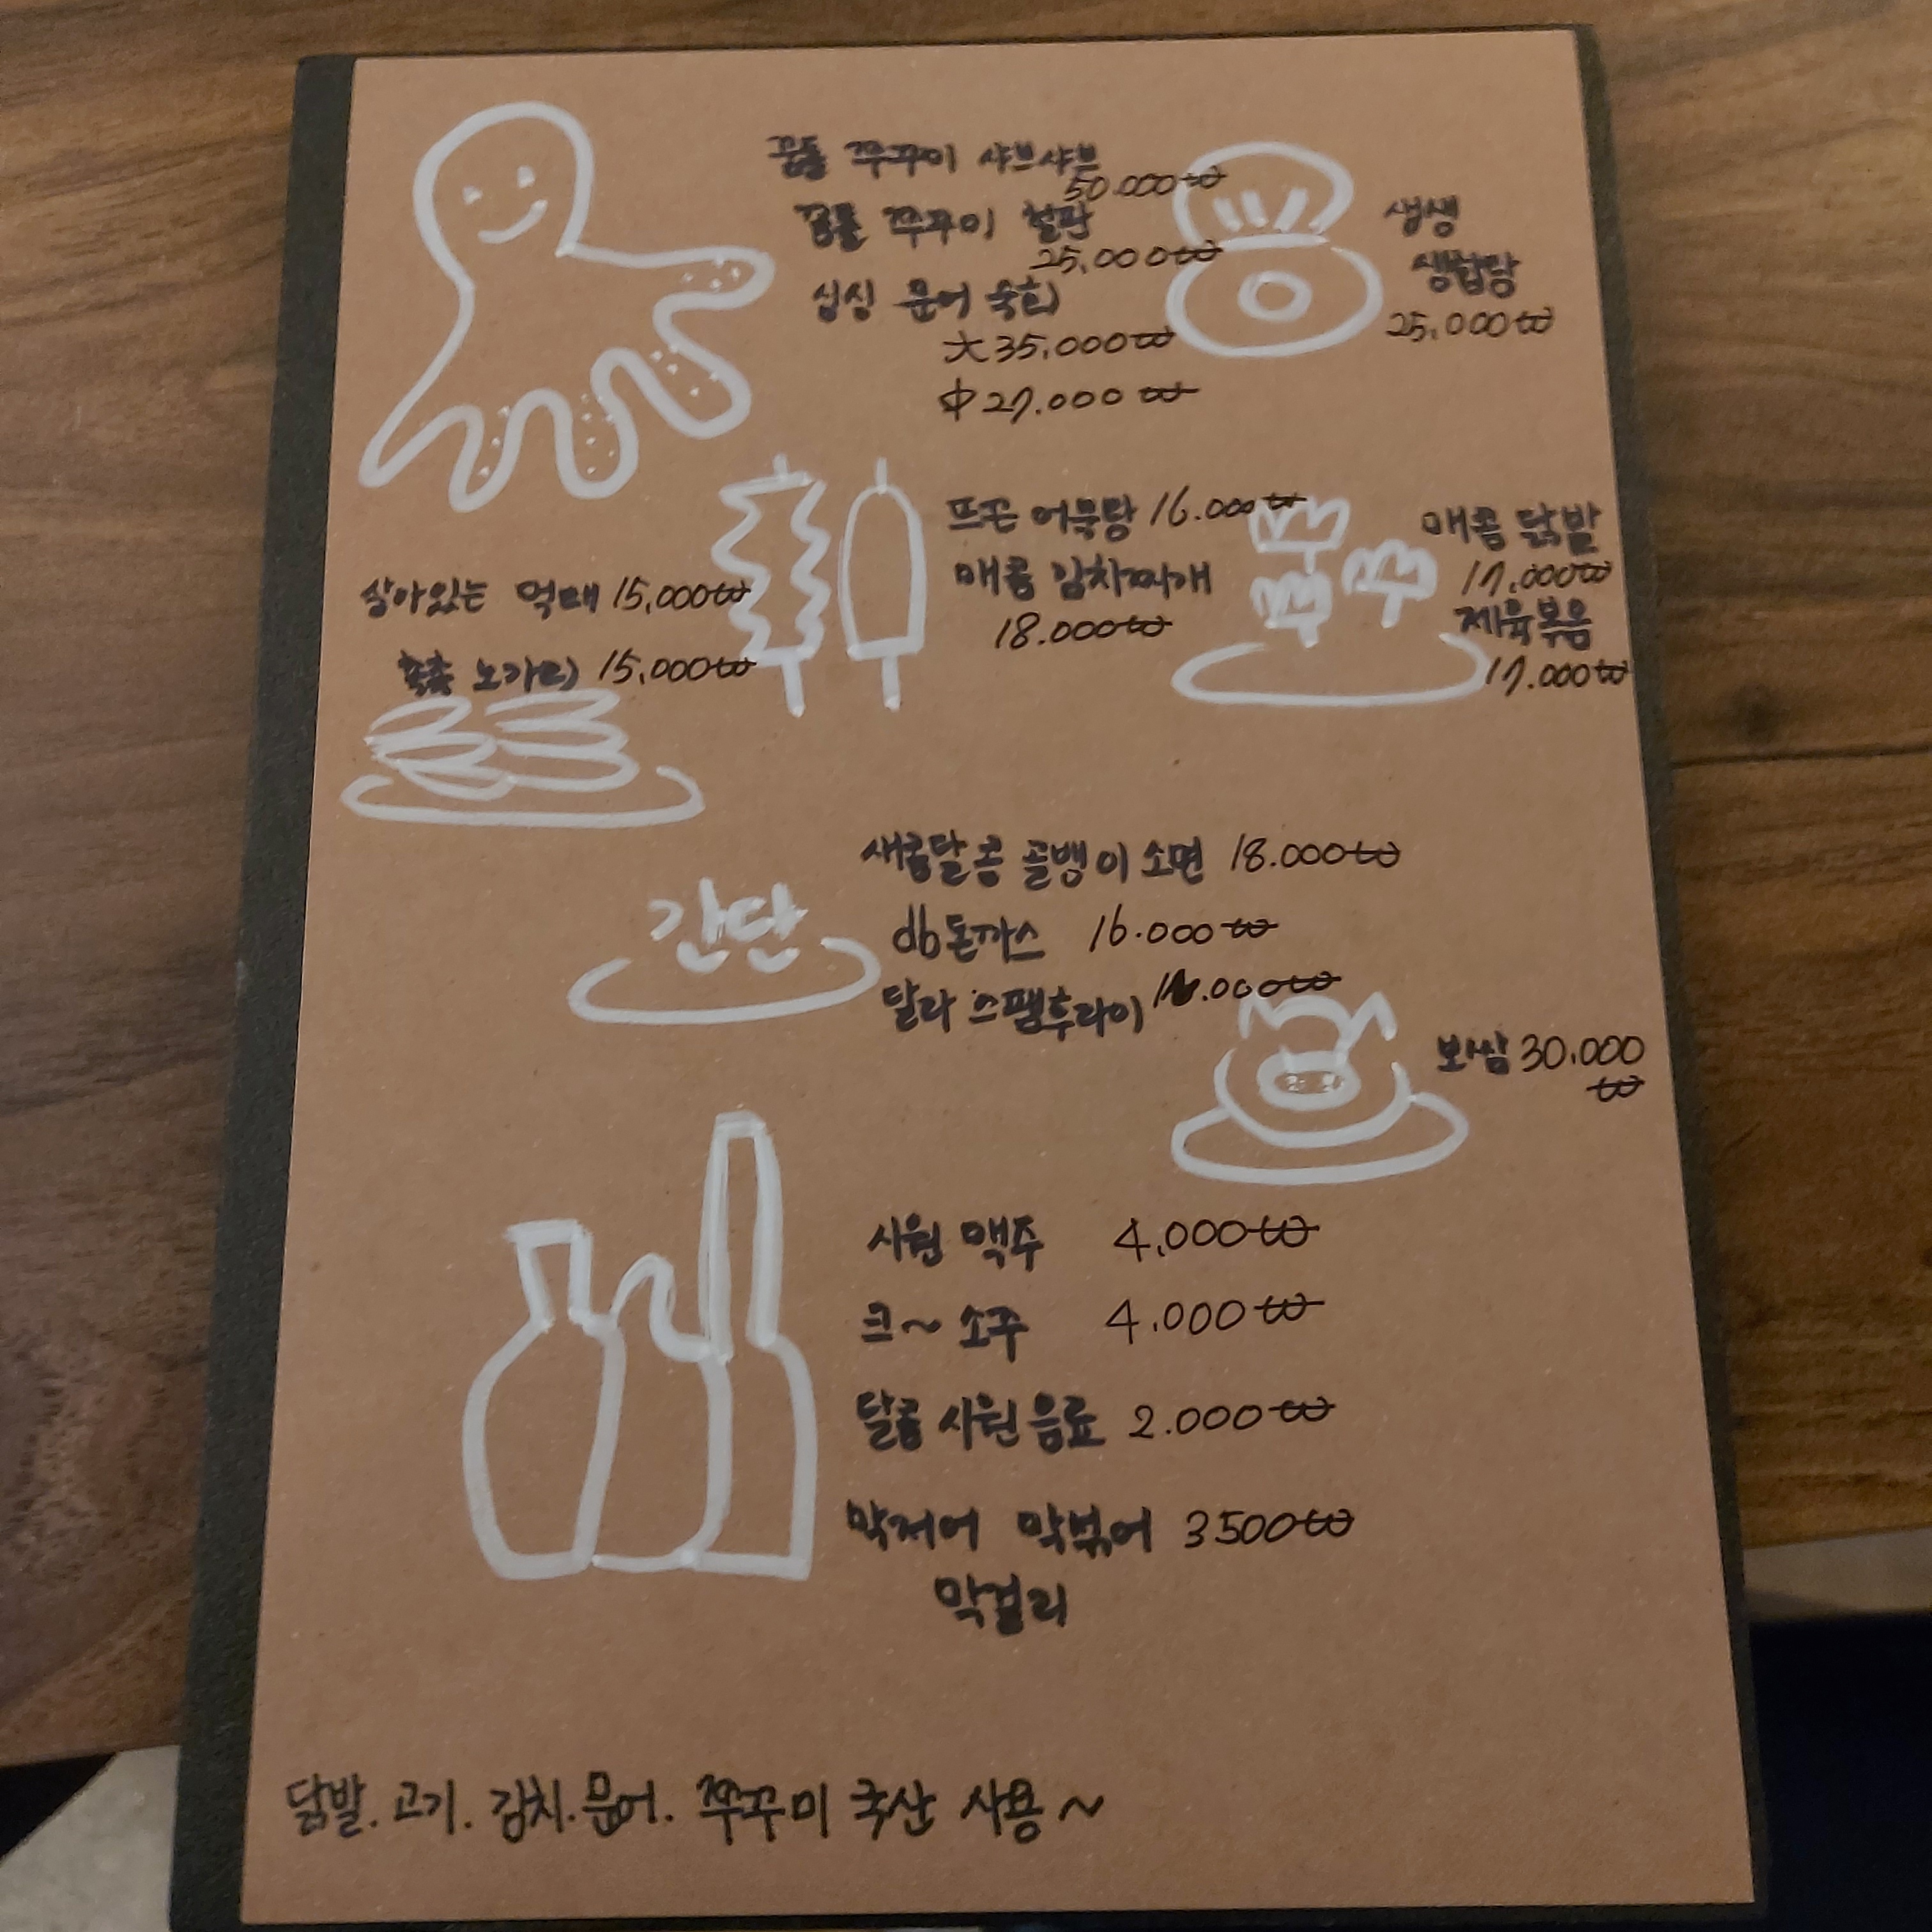 꿈틀 쭈꾸미 샤브샤브
50.000₩
꿈틀 쭈꾸미 철판
25,000₩
싱싱 문어 숙회
大 35,000₩
中 27.000₩
생생
생합탕
25,000₩
뜨끈 어묵탕 16.000₩
매콤 김치찌개
18.000₩
매콤 닭발
17,000₩
제육볶음
17.000₩
살아있는 먹태 15,000₩
촉촉 노가리 15,000₩
새콤달콤 골뱅이 소면 18.000₩
간단
db돈까스 16.000₩
달라 스팸후라이
보쌈 30.000
₩
시원 맥주 4,000₩
크~ 소주 4.000₩
달콤 시원 음료 2.000₩
막저어 막볶어 3500₩
막걸리
닭발. 고기. 김치. 문어. 쭈꾸미 국산 사용~